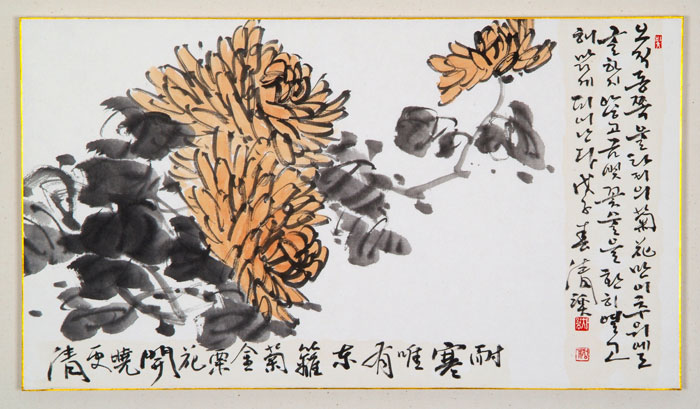 오직 동쪽 울타리의 菊花만이 추위에도
굴하지 않고 금빛 꽃술을 환히 열고
해맑게 피어난다 戊子春 清
耐寒唯有東籬菊金粟花開曉更清